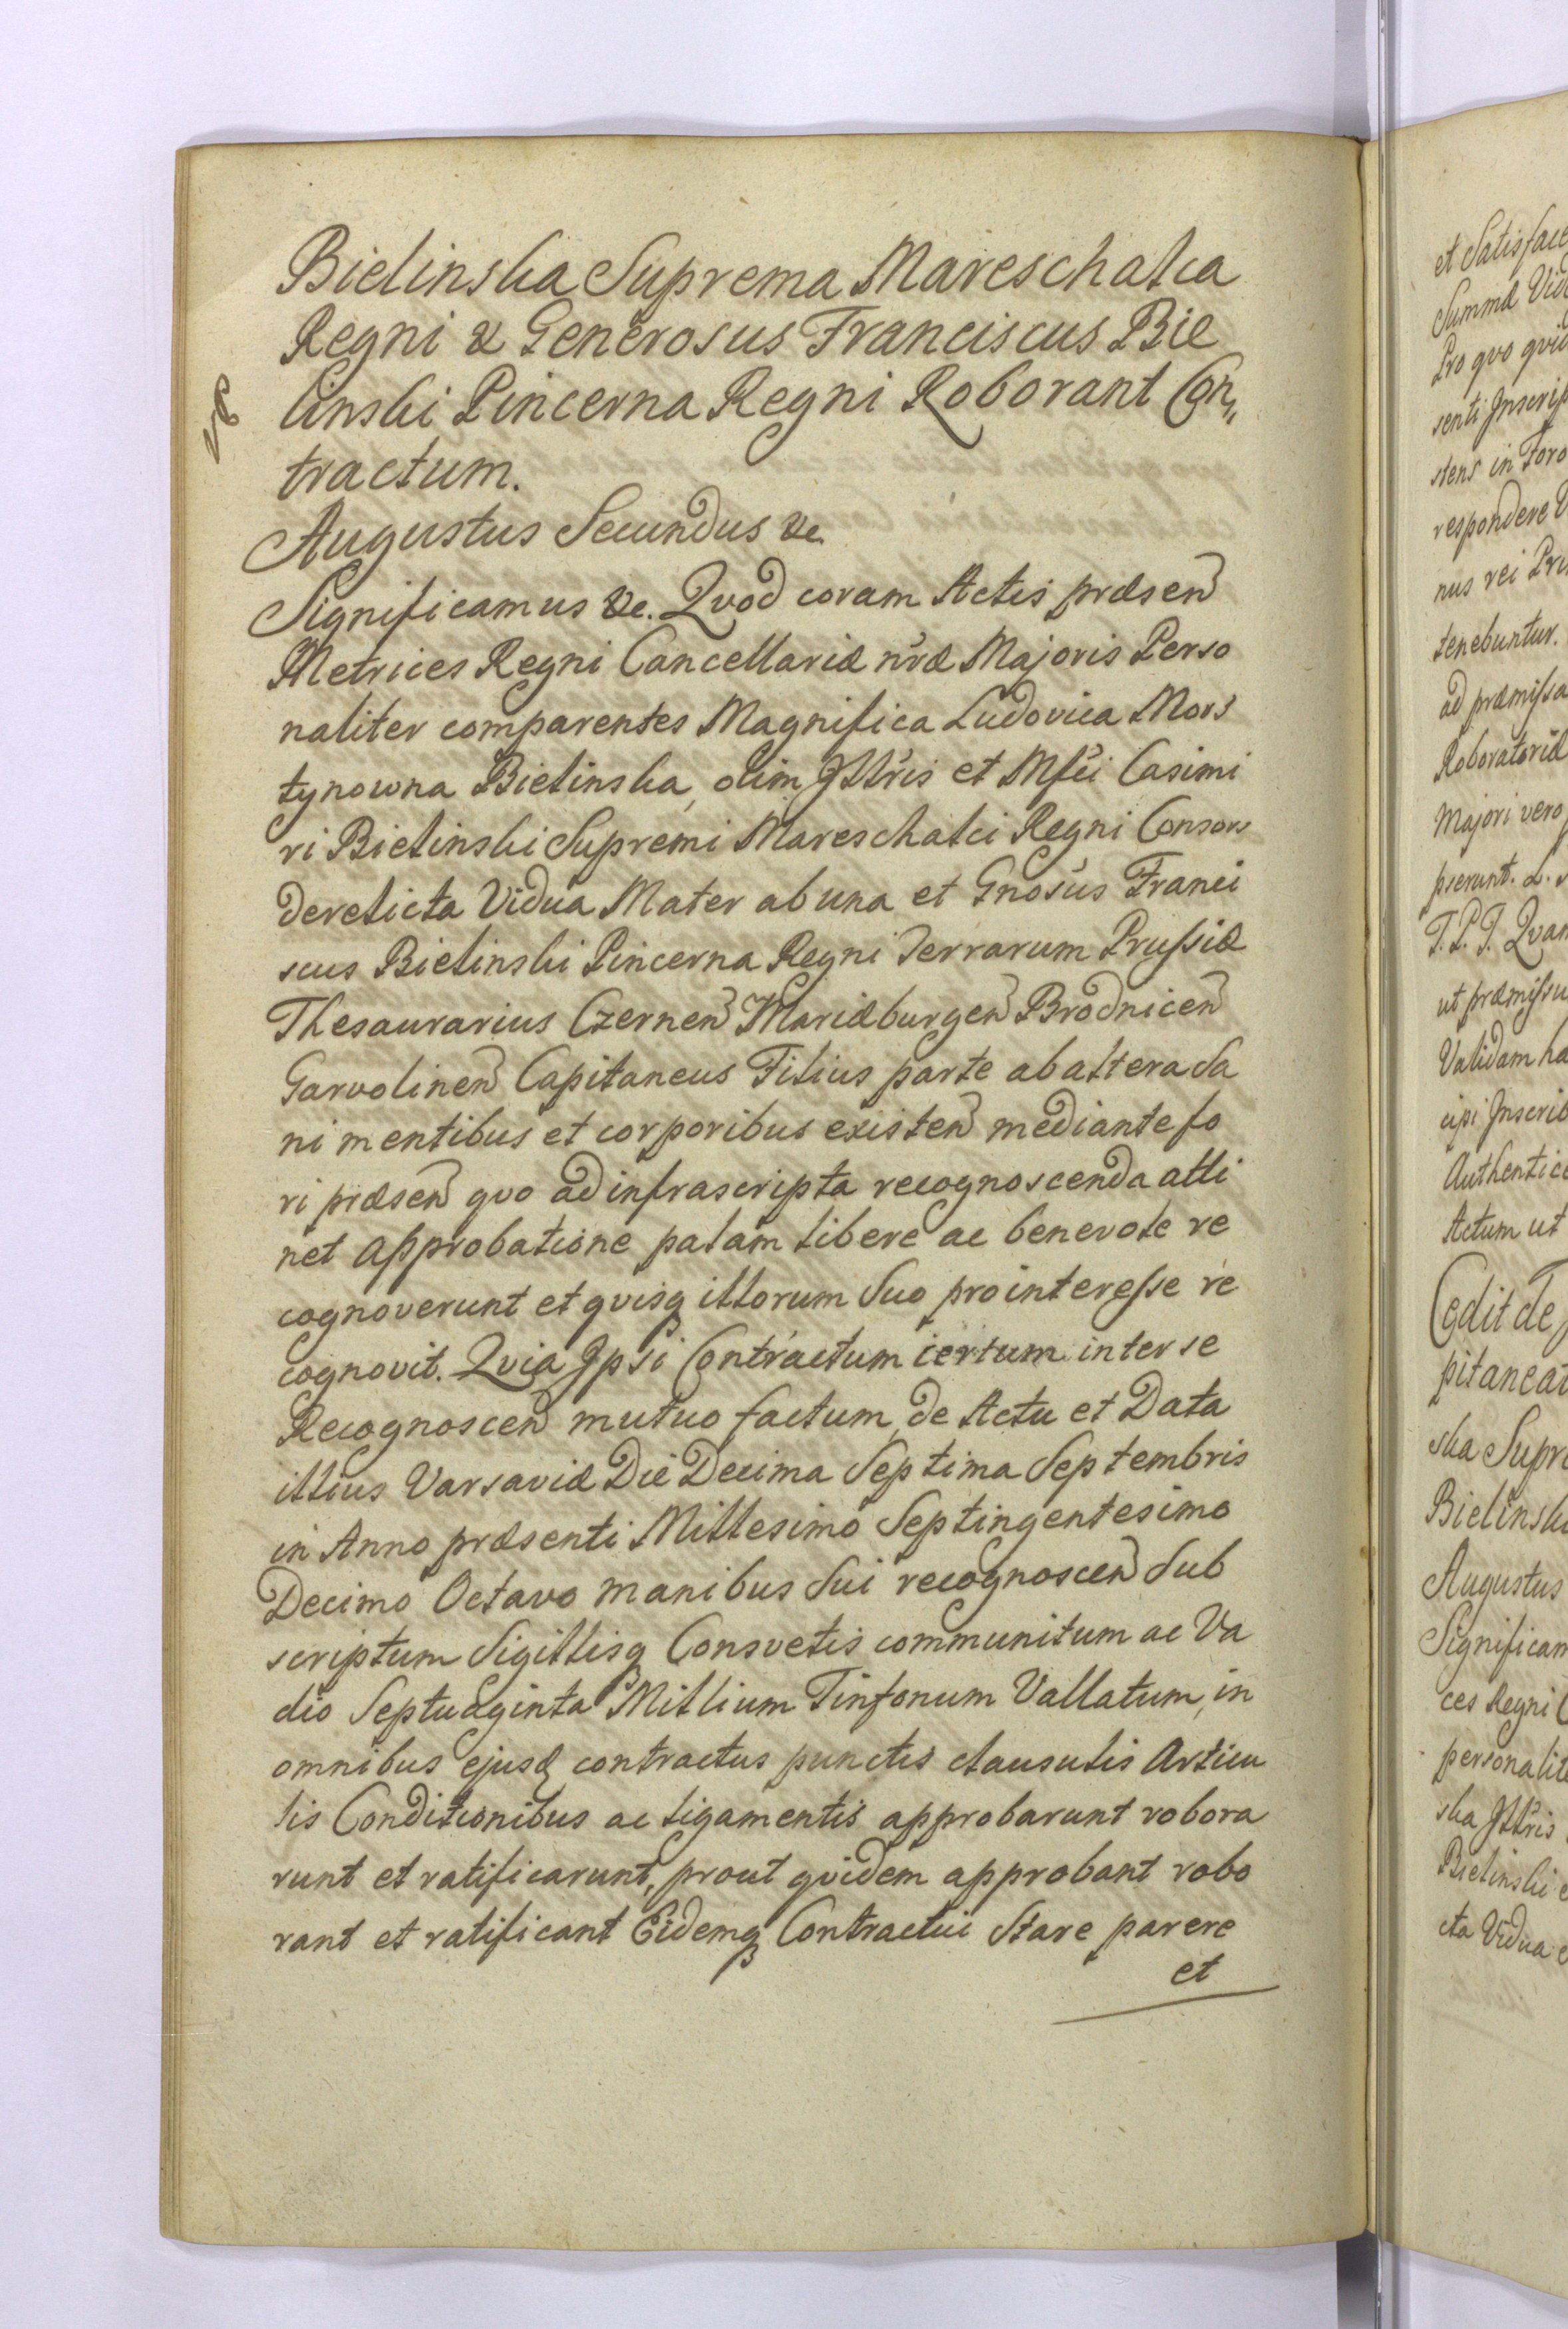 Bielinska Suprema Mareschalca
Regni & Generosus Franciscus Bie
linski Pincerna Regni Roborant Con„
tractum.
Augustus Secundus &c.
Significamus &c. Qvod coram Actis præsen
Metrices Regni Cancellariæ nræ Majoris Perso
naliter comparentes Magnifica Ludovica Mors
tynowna Bielinska, olim Jllris et Mfci Casimi
ri Bielinski Supremi Mareschalci Regni Consors
derelicta Vidua Mater ab una et Gnosus Franci
scus Bielinski Pincerna Regni Terrarum Prussiæ
Thesaurarius Czernen Mariæburgen Brodnicen
Garvolinen Capitaneus Filius parte ab altera Sa
ni mentibus et corporibus existen mediante fo
ri præsen qvo ad infrascripta recognoscenda atti
net approbatione palam libere ac benevole re
cognoverunt et qvisq illorum Suo pro interesse re
cognovit. Qvia Jpsi Contractum certum inter se
Recognoscen mutuo factum, de Actu et Data
illius Varsaviæ Die Decima Septima Septembris
in Anno præsenti Millesimo Septingentesimo
Decimo Octavo manibus Sui recognoscen Sub
scriptum Sigillisq Consvetis communitum ac Va
dio Septuaginta Millium Tinfonum Vallatum, in
omnibus ejusd contractus punctis clausulis Articu
lis Conditionibus ac ligamentis approbarunt robora
runt et ratificarunt, prout qvidem approbant robo
rant et ratificant Eidemq Contractui Stare parere
et
et Satisfac
Summæ
Pro qvo
senti Jnscrip
stens in Foro
respondere
nus rei
tenebuntur.
ad præmissa
Roboratoriæ
Majori vero
pserunt. L.
T. P. J. Qvan
ut præmissu
Validam ha
cipi Jnscrib
Authentice
Actum ut
Cedit de
pitaneat
ska Supre
Bielinsk
Augustus
Significam
ces Regni C
personalite
ska Jllris
Bielinski
cta Vidua